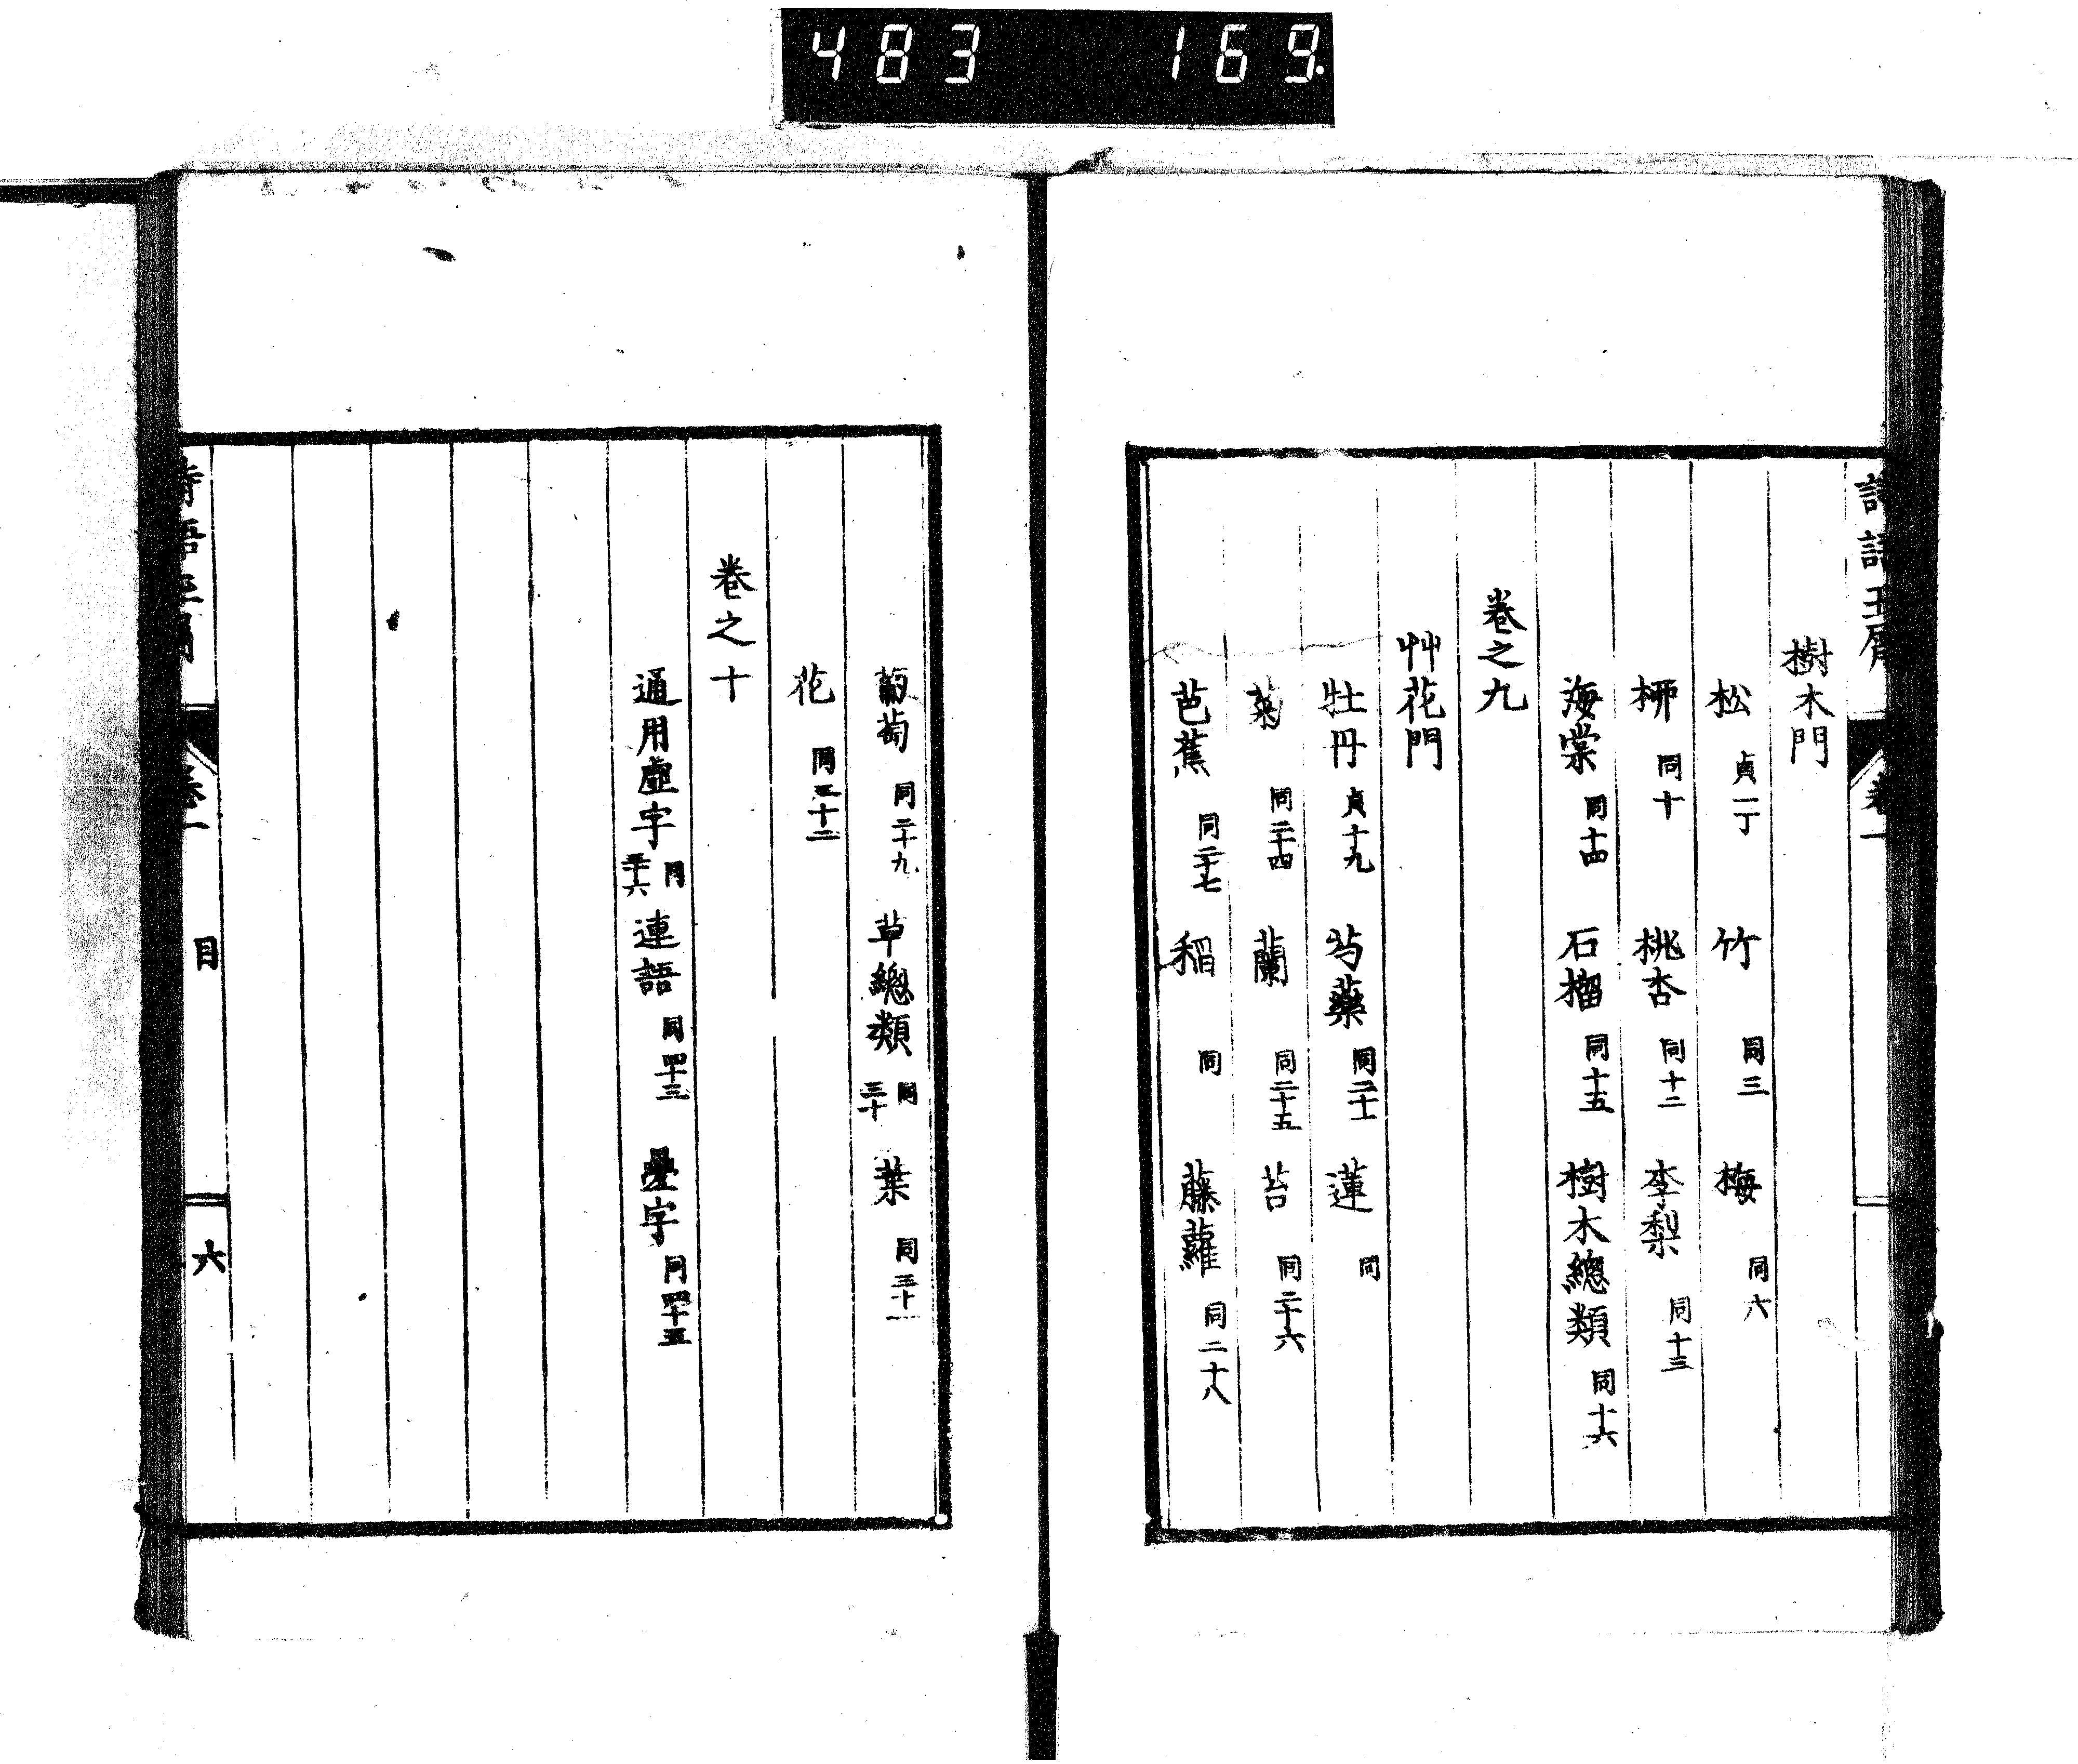 483 169.
詩語玉屑 卷一
樹木門
松 貞一丁 竹 同三 梅 同六
栁 同十 桃杏 同十二 李梨 同十三
海棠 同十四 石榴 同十五 樹木總類 同十六
卷之九
艸花門
牡丹 貞十九 芍藥 同二十一 蓮 同
菊 同二十四 蘭 同二十五 苔 同二十六
芭蕉 同二十七 稻 同 藤蘿 同二十八
葡萄 同二十九 草總類 同三十 葉 同三十一
花 同三十二
卷之十
通用虛字 同三十六 連語 同四十三 疊字 同四十五
詩語玉屑 卷一 目 六